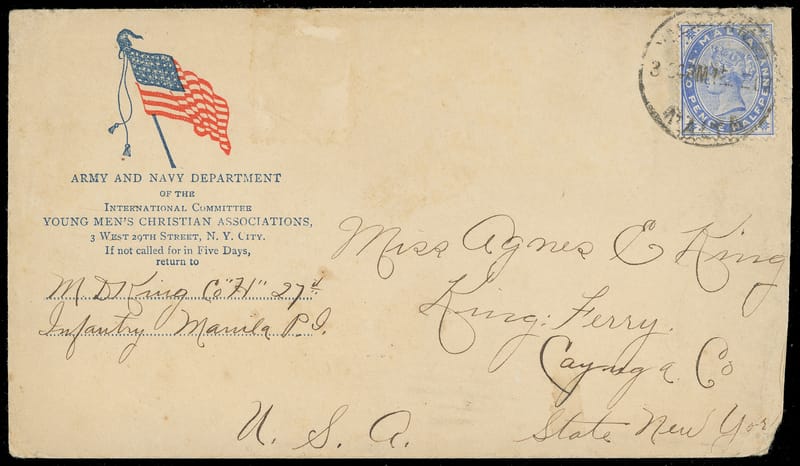 ARMY AND NAVY DEPARTMENT
OF THE
INTERNATIONAL COMMITTEE
YOUNG MEN'S CHRISTIAN ASSOCIATIONS,
3 WEST 29TH STREET, N. Y. CITY.
If not called for in Five Days,
return to
M D King Co "H" 27th
Infantry Manila P. I.
MALTA
TWO PENCE HALFPENNY
MALTA
Miss Agnes E King
King: Ferry.
Cayuga Co
State New York
U. S. A.